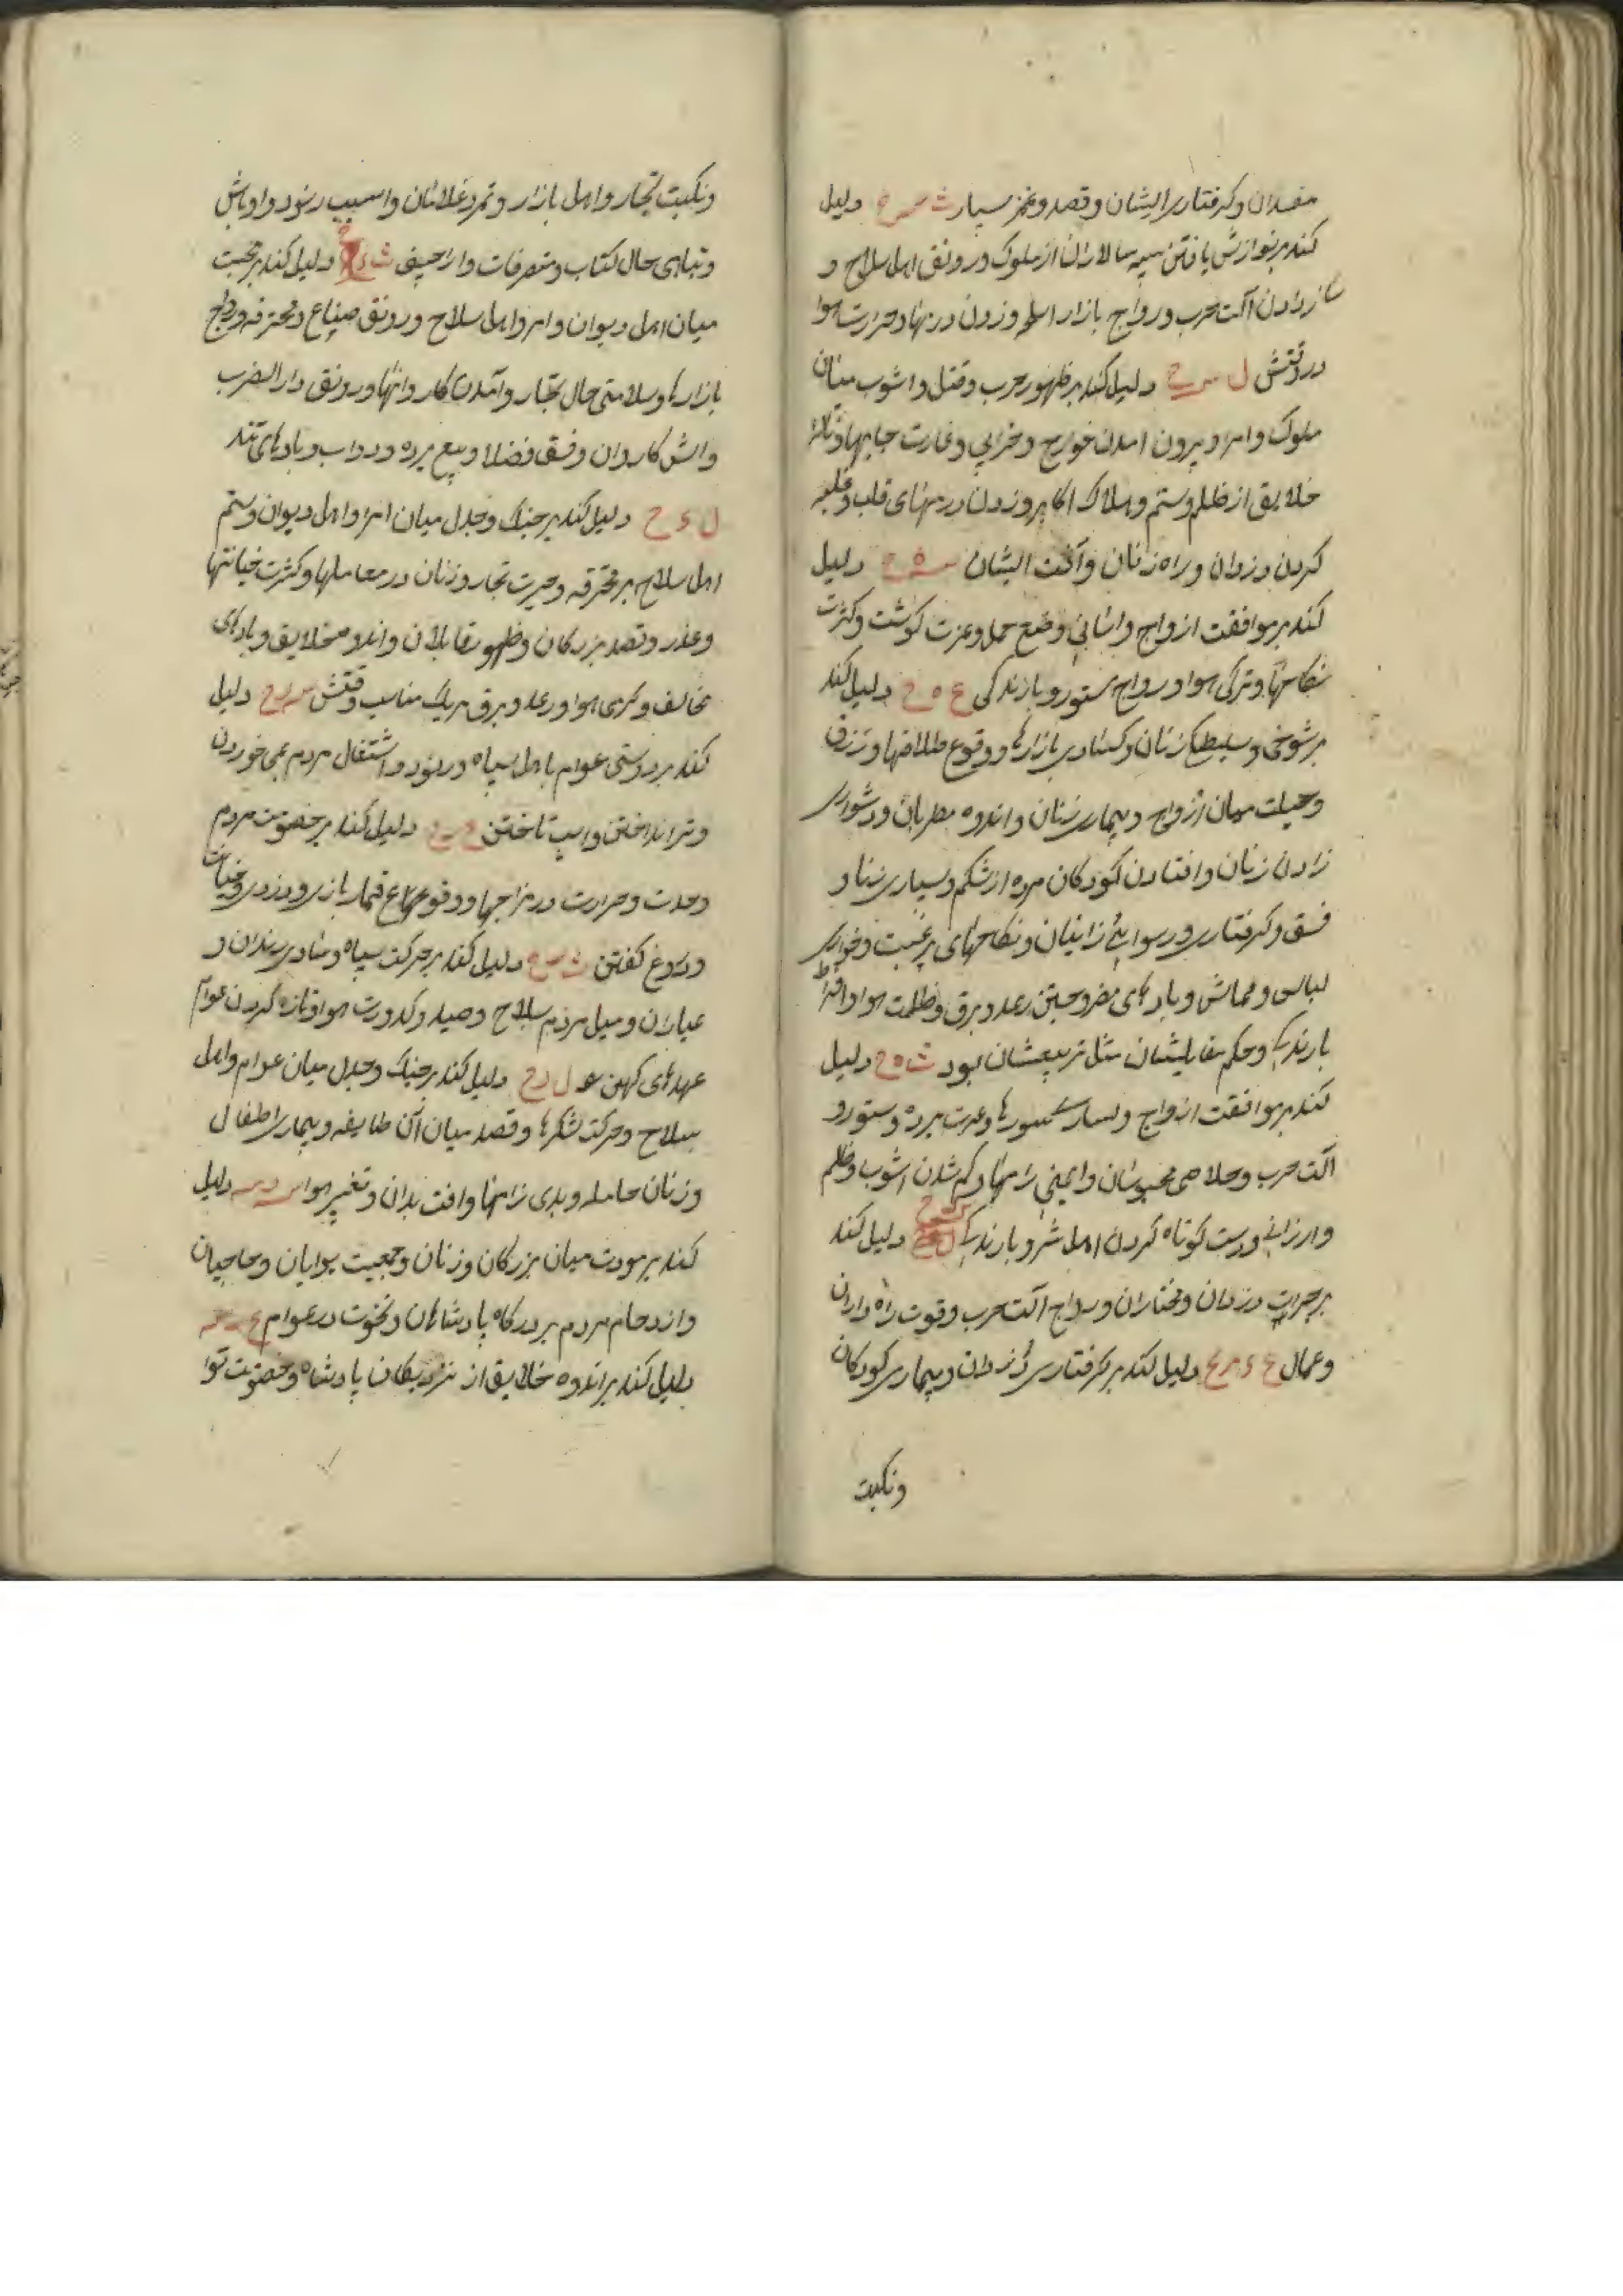 مفسدان و کرفتاری ایشان و قصد و غمز بسیار ث س ه دلیل
کند بر نوازش یافتن سپه سالاران از ملوک و رونق اهل سلاح و
ساز دادن آلت حرب و رواج بازار اسلحه و زدن درنها و حرارت هوا
در وقتش ل س ح دلیل کند بر ظهور حرب و قتل و اشوب میان
ملوک و امرا و بیرون امدن خوارج و خرابی و غارت جایها و تالم
خلایق از ظلم و ستم و هلاک اکابر و زدن درمهای قلب و غلبه
کردن دزدان و راه زنان و آفت ایشان دلیل
کند بر موافقت ازواج و اسانی وضع حمل و عزت کوشت و کثرت
نکاحها و تری هوا و رواج ستور و بارندکی ع ه ح دلیل کند
بر شوخی و سلیطکی زنان و کسادی بازارها و وقوع طلاقها و تزرق
و حیلت میان ازواج و بیماری زنان و اندوه مطربان و دشواری
زادن زنان و افتادن کودکان مرده از شکم و بسیاری زنا و
فسق و کرفتاری و رسوایی زانیان و نکاحهای برغبت و خواری
لباس و قماش و بادهای مضر و جستن رعد و برق و ظلمت هوا و افراط
بارندکی و حکم مقابلیشان مثل تربیعشان بود ث ه ح دلیل
کند بر موافقت ازواج و بسیاری سورها و عزت برده و ستور و
الت حرب و خلاصی محبوسان و ایمنی راهها و کم شدن اشوب و ظلم
و ارزانی و دست کوتاه کردن اهل شر و بارندکی دلیل کند
بر جرات دزدان و مختاران و رواج آلت حرب و قوت راه داران
و عمال ع ء م ح دلیل کند بر کرفتاری دزدان و بیماری کودکان
ونکبت
ونکبت تجار و اهل بازار و تمرد غلامان و اسیب رنود و اوباش
و تباهی حال کتاب و متصرفات و اراجیف ث ء دلیل کند بر محبت
میان اهل دیوان و امرا و اهل سلاح و رونق صناع و محترفه و رواج
بازارها و سلامتی حال تجار و آمدن کاروانها و رونق دار الضرب
و اتش کاران و فسق فضلا و بیع برده و دواب و بادهای تند
ل ء ح دلیل کند بر جنک و جدل میان امرا و اهل دیوان و ستم
اهل سلاح بر محترفه و حیرت تجار و زنان در معاملها و کثرت خیانتها
و عذر و قصد بزرکان و ظهور نقابان و اندوه خلایق و بادهای
مخالف و کرمی هوا و رعد و برق هریک مناسب وقتش س د ح دلیل
کند بر دوستی عوام با اهل سپاه و رنود و اشتغال مردم بمی خوردن
و تیر انداختن و اسپ تاختن دلیل کند بر خصومت مردم
و حدت و حرارت در مزاجها و وقوع قمار بازی و دزدی و خیانت
و دروغ کفتن دلیل کند بر حرکت سپاه و شادی رندان و
عیاران و میل مردم بسلاح و صید و کدورت هوا و تازه کردن عوام
عهدهای کهن ل د ح دلیل کند بر جنک و جدل میان عوام و اهل
سلاح و حرکت لشکرها و قصد میان آن طایفه و بیماری اطفال
و زنان حامله و بدی راهها و افت بدان و تغییر هوا دلیل
کند بر مودت میان بزرکان و زنان و جمعیت بوابان و حاجبان
و ازدحام مردم بر درکاه پادشاهان و نخوت در عوام
دلیل کند بر اندوه خلایق از نزدیکان پادشاه و خصومت